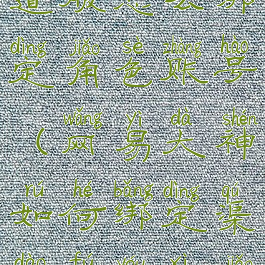 dìng jiǎo sè zhàng hào
定角色账号
wǎng yì dà shén
（网易大神
rú hé bǎng dìng qú
如何绑定渠